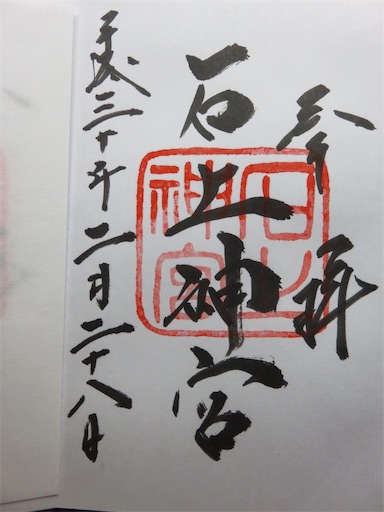 奉拝
石上神宮
石上
神宮
平成三十年二月二十八日